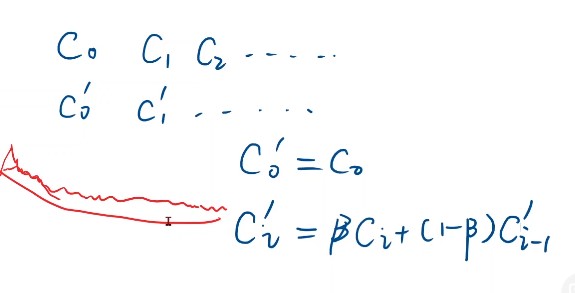 C₀ C₁ C₂ ‐ ‐ ‐ ‐ ‐
C₀′ C₁′ ‐ ‐ ‐ ‐ ‐
C₀′ = C₀
Cᵢ′ = βCᵢ + (1-β)Cᵢ₋₁′